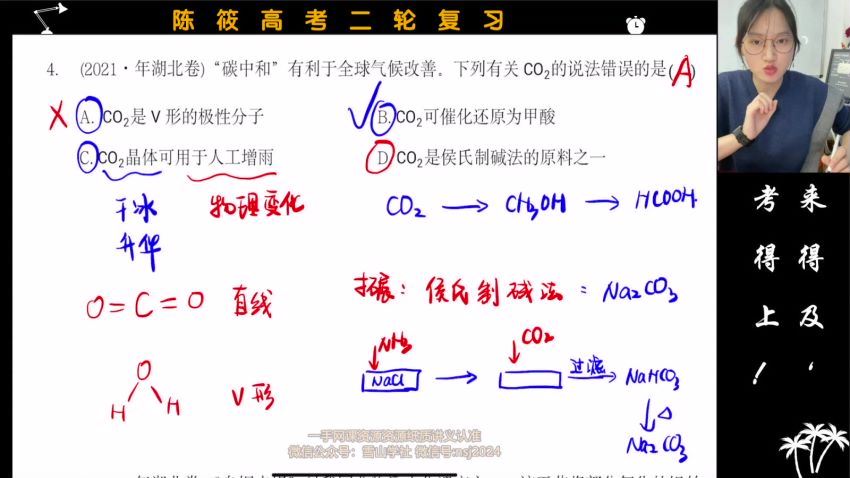 陈筱高考二轮复习
4. (2021·年湖北卷)“碳中和”有利于全球气候改善。下列有关 CO₂的说法错误的是( A )
A. CO₂是 V 形的极性分子
B. CO₂可催化还原为甲酸
C. CO₂晶体可用于人工增雨
D. CO₂是侯氏制碱法的原料之一
干冰 物理变化
升华
CO₂ → CH₃OH → HCOOH
O=C=O 直线
拓展：侯氏制碱法：Na₂CO₃
NH₃ CO₂
NaCl → 过滤 → NaHCO₃
↓△
Na₂CO₃
O
H H V形
一手网课资源资源纸质讲义认准
微信公众号：雪山学社 微信号:nsj2024
来得及，
考得上！